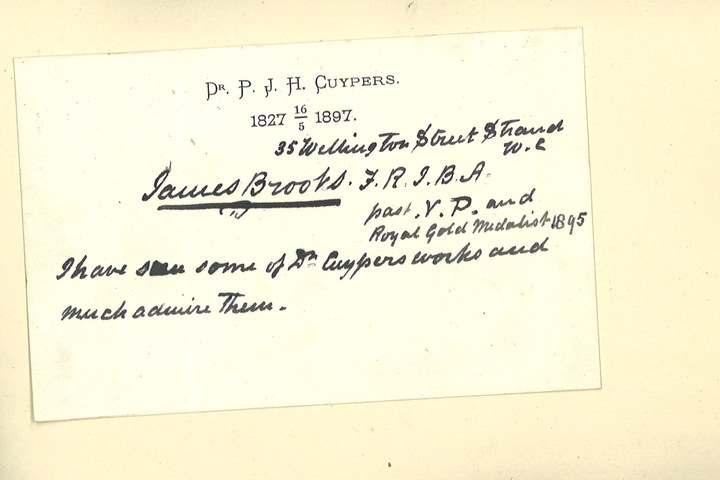 Dr. P. J. H. Cuypers.
1827 16/5 1897.
35 Wellington Street Strand
W.C
James Brooks. F.R.I.B.A.
past. V.P. and
Royal Gold Medalist 1895
I have seen some of Dr Cuypers works and
much admire them.